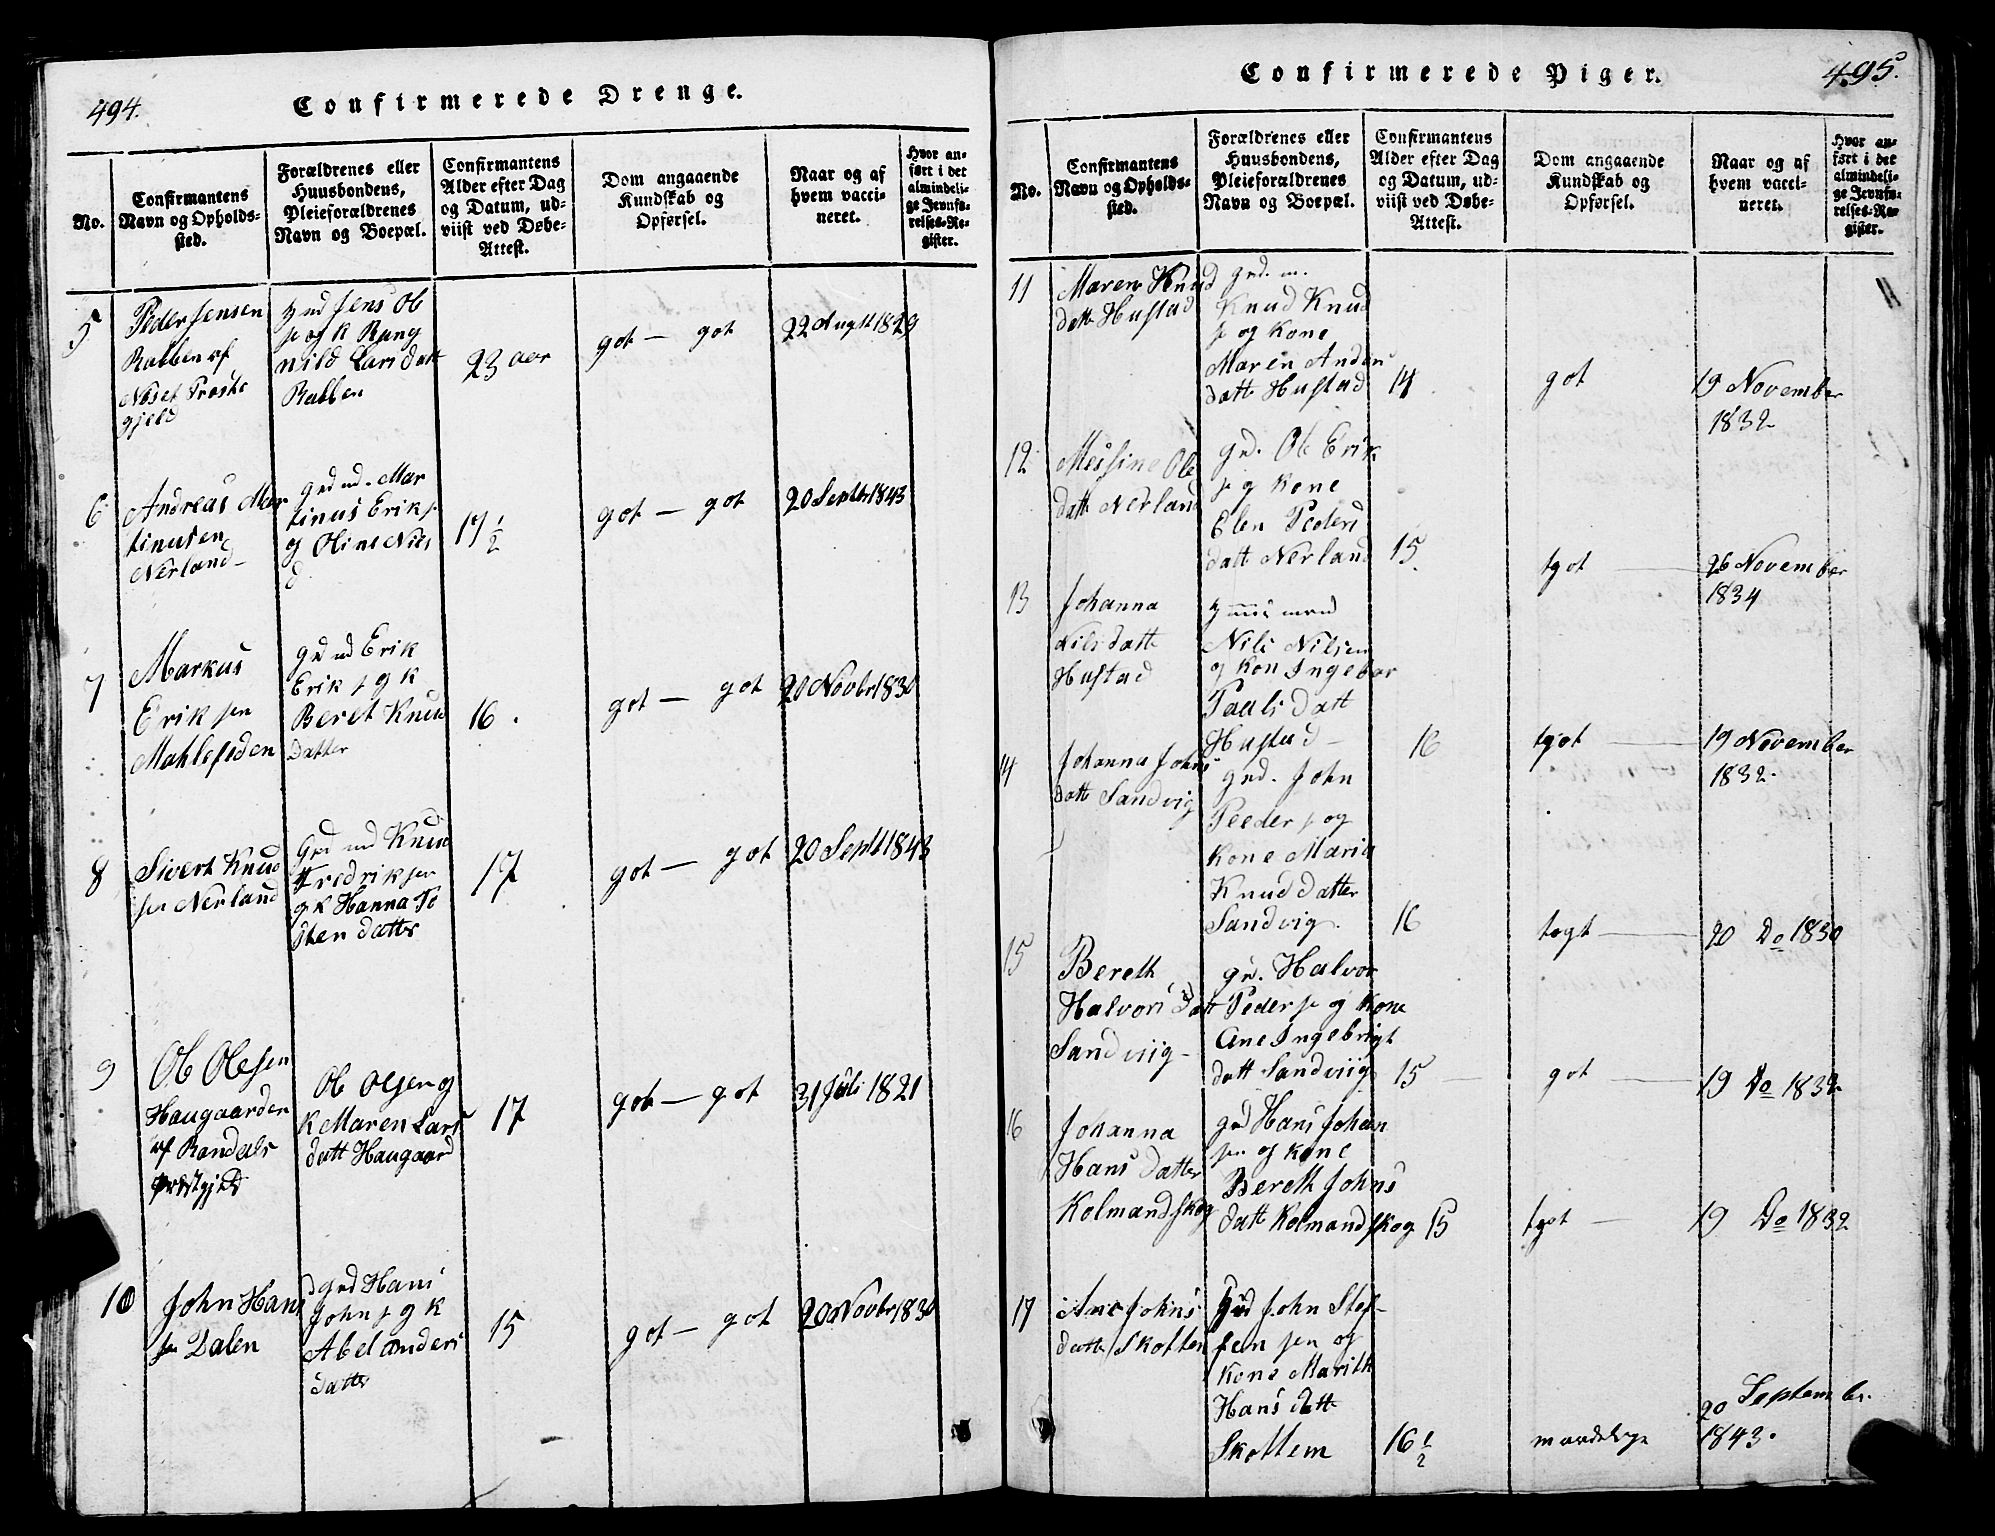 494.
Confirmerede Drenge.
No.
Confirmantens
Navn og Opholds-
sted.
Forældrenes eller
Huusbondens,
Pleieforældrenes
Navn og Boepæl.
Confirmantens
Alder efter Dag
og Datum, ud-
viist ved Døbe-
Attest.
Dom angaaende
Kundskab og
Opførsel.
Naar og af
hvem vacci-
neret.
Hvor an-
ført i det
almindeli-
ge Jevnfø-
relses-Re-
gister.
5
Peder Jensen
Rabben af
Næset Præste
gjeld
Jens Ole
s og k Rang
nild Larsdatt
Rabben
23 aar
got — got
22 Augst 1829
6
Andreas Mar
tinusen
Nerland
grd md. Mar
tinus Eriks
og Oline Nils
d
17 1/2
got — got
20 Septbr 1843
7
Markus
Erik sen
Mahlefsden
grd md Erik
Erik s g k
Beret Knud
Datter
16.
got — got
20 Novbr 1830
8
Sivert Knud
sen Nerland
Grd md Knud
Fredriksen
g k Hanna To
sten datter
17
got — got
20 Septbr 1843
9
Ole Olesen
Haugaarden
af Romdals
præstgjeld
Ole Olsen og
k Maren Lars
datt Haugaard
17
got — got
31 Juli 1821
10
John Hans
sen Dalen
grd Hans
John s g k
Abel anders
datter
15
got — got
20 Novbr 1830
495.
Confirmerede Piger.
No.
Confirmantens
Navn og Opholds-
sted.
Forældrenes eller
Huusbondens,
Pleieforældrenes
Navn og Boepæl.
Confirmantens
Alder efter Dag
og Datum, ud-
viist ved Døbe-
Attest.
Dom angaaende
Kundskab og
Opførsel.
Naar og af
hvem vacci-
neret.
Hvor an-
ført i det
almindeli-
ge Jevnfø-
relses-Re-
gister.
11
Maren Knud
datt Hustad
grd. m.
Knud Knud
s og Kone
Maren Anders
datt Hustad
14
got
19 November
1832
12
Messine Ole
datt Nerland
grd. Ole Erik
s g Kone
Elen Peders
datt Nerland
15.
tgot
26 November
1834
13
Johanna
Nils datt
Hustad
Huusmand
Nils Nilsen
og Kon Ingebor
Pauls datt
Hustad
16
tgot
19 November
1832.
14
Johanna Johns
datt Sandvig
grd. John
Peeder s og
Kone Maria
Knud datter
Sandvig.
16
togt
20 Do 1830
15
Bereth
Halvors datt
Sandviig
grd. Halvor
Peder s og Kone
Ane Ingebrigt
datt Sandviig
15
got
19 Do 1832
16
Johanna
Hans datter
Kolmandskog
grd Hans Johan
sen og Kone
Bereth Johns
datt Kolmandskog
15
tgot
19 Do 1832
17
Ane Johns
datt Skotten
grd John Stef-
fen sen og
Kone Marith
Hans datt
Skottem
16 1/2
maadelige
20 September
1843.